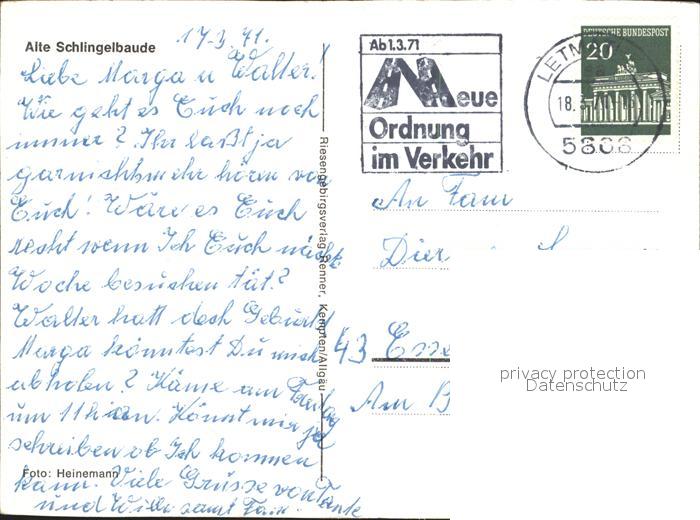 Alte Schlingelbaude
17.3.71.
Liebe Marga u Walter!
Wie geht es Euch noch
immer? Ihr laßt ja
garnichtsmehr hören von
Euch! Wäre es Euch
recht wenn Ich Euch nächste
Woche besuchen tät?
Walter hatt doch Geburts
Marga könntest Du mich
abholen? Käme am Freitag
um 11h an. Könnt mir ja
schreiben ob Ich kommen
kann. Viele Grüsse von Tante
und Willi samt Fam.
Foto: Heinemann
Riesengebirgsverlag Renner, Kempten/Allgäu
Ab 1.3.71
Neue
Ordnung
im Verkehr
LETM
18.
5868
DEUTSCHE BUNDESPOST
20
An Fam
Dier
43 Esse
Am B
privacy protection
Datenschutz